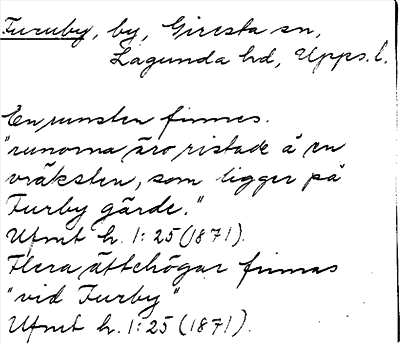 Furuby, by, Giresta sn,
Lagunda hd, Upps. l.
En runsten finnes.
"runorna äro ristade å en
vräksten, som ligger på
Furby gärde."
Ufmt h. 1: 25 (1871).
Flera ättehögar finnas
"vid Furby"
Ufmt h. 1: 25 (1871).